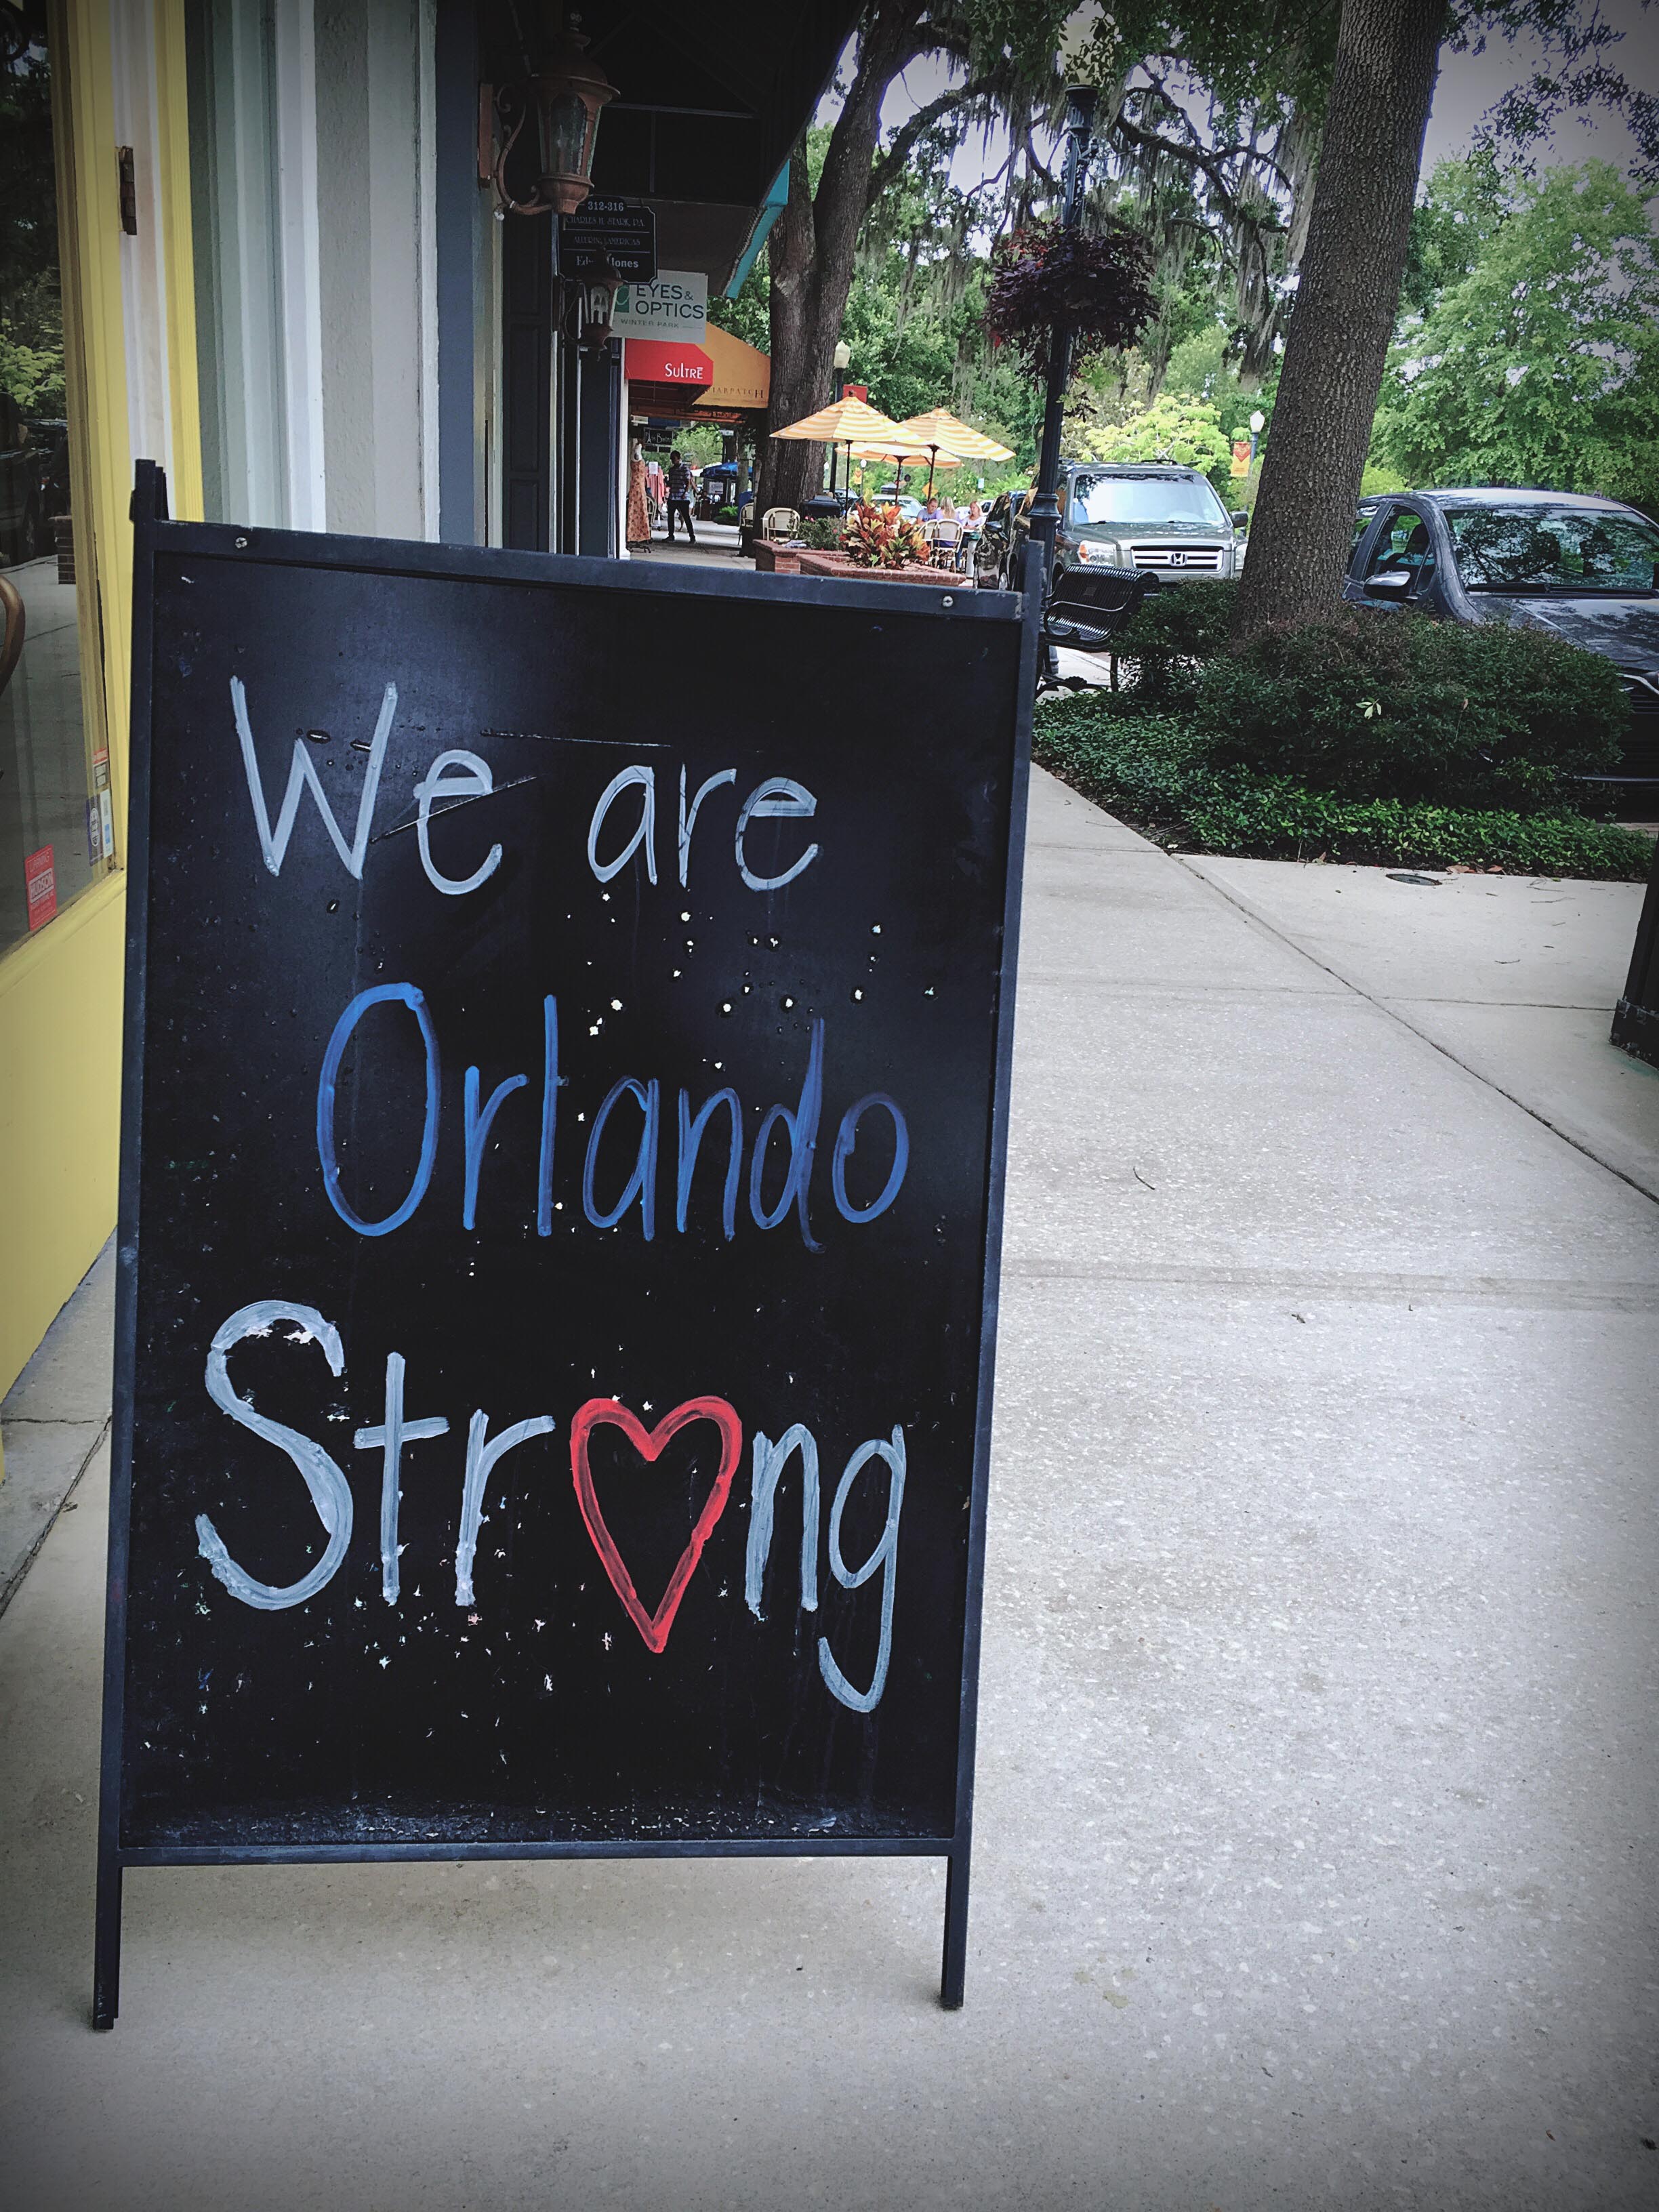 312-316
EYES &
OPTICS
WINTER PARK
SULTRE
We are
Orlando
Str♡ng
HUDSON